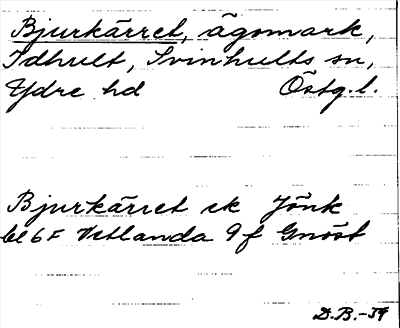 Bjurkärret, ägomark,
Idhult, Svinhults sn,
Ydre hd Östg. l.
Bjurkärret ek Jönk
bl 6F Vetlanda 9f Gnöst
D.B.-39